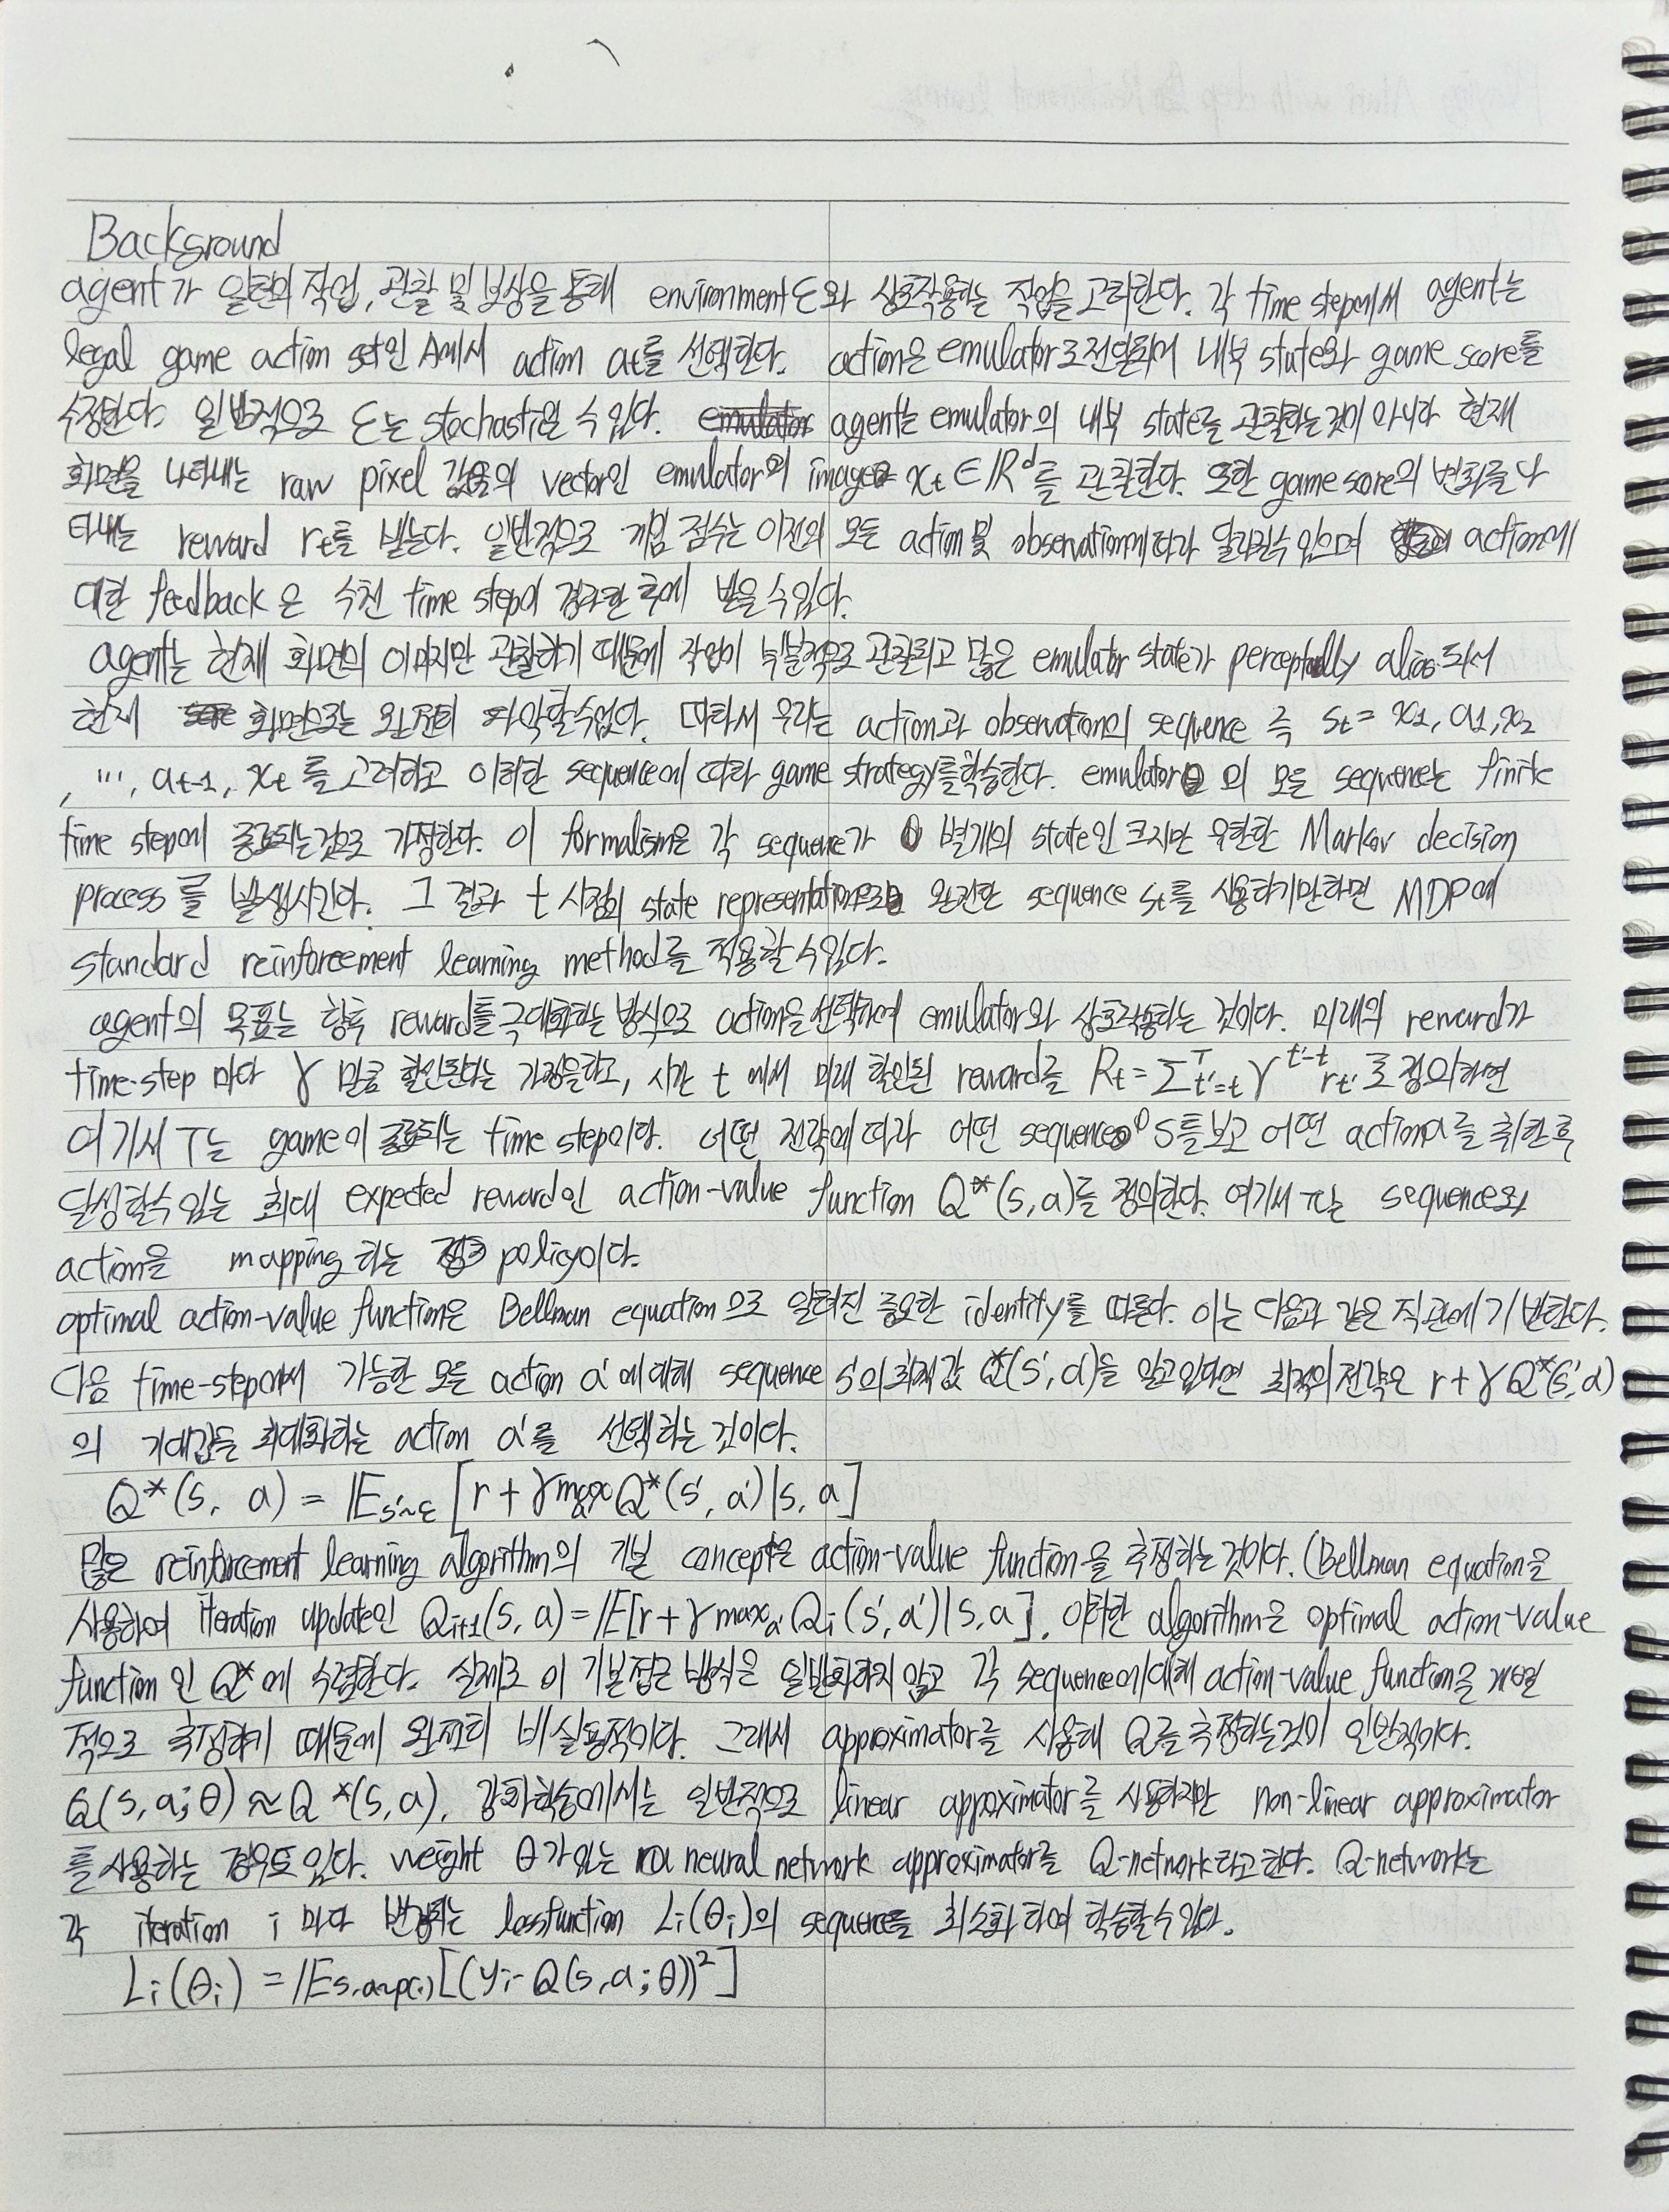 Background
agent가 일련의 작업, 관찰 및 보상을 통해 environment ε와 상호작용하는 작업을 고려한다. 각 time step에서 agent는
legal game action set인 A에서 action at를 선택한다. action은 emulator로 전달되어 내부 state와 game score를
수정한다. 일반적으로 ε는 stochastic일 수 있다. agent는 emulator의 내부 state를 관찰하는것이 아니라 현재
화면을 나타내는 raw pixel 값들의 vector인 emulator의 image xt ∈ ℝᵈ를 관찰한다. 또한 game score의 변화를 나
타내는 reward rt를 받는다. 일반적으로 게임 점수는 이전의 모든 action 및 observation에 따라 달라질수 있으며 action에
대한 feedback은 수천 time step이 경과한 후에 받을 수 있다.
agent는 현재 화면의 이미지만 관찰하기 때문에 작업이 부분적으로 관찰되고 많은 emulator state가 perceptually alias 되서
현재 화면으로는 완전히 파악할수없다. 따라서 우리는 action과 observation의 sequence 즉 st = x1, a1, x2
, ..., at-1, xt 를 고려하고 이러한 sequence에 따라 game strategy를 학습한다. emulator의 모든 sequence는 finite
time step에 종료되는것으로 가정한다. 이 formalism은 각 sequence가 별개의 state인 크지만 유한한 Markov decision
process를 발생시킨다. 그 결과 t 시점의 state representation으로 완전한 sequence st를 사용하기만하면 MDP에
standard reinforcement learning method를 적용할 수있다.
agent의 목표는 향후 reward를 극대화하는 방식으로 action을 선택하여 emulator와 상호작용하는 것이다. 미래의 reward가
time-step 마다 γ 만큼 할인된다는 가정을하고, 시간 t 에서 미래 할인된 reward를 Rt = Σ^T_{t'=t} γ^{t'-t} rt' 로 정의하면
여기서 T는 game이 종료되는 time step이다. 어떤 전략에 따라 어떤 sequence S를 보고 어떤 action a를 취한 후
달성할수 있는 최대 expected reward인 action-value function Q*(s,a)를 정의한다. 여기서 π는 sequence와
action을 mapping 하는 policy이다.
optimal action-value function은 Bellman equation으로 알려진 중요한 identity를 따른다. 이는 다음과 같은 직관에 기반한다.
다음 time-step에서 가능한 모든 action a'에 대해 sequence s'의 최적값 Q*(s', a')을 알고 있다면 최적의 전략은 r + γQ*(s', a')
의 기대값을 최대화하는 action a'를 선택하는 것이다.
Q*(s, a) = 𝔼s'~ε [r + γ max a' Q*(s', a') | s, a]
많은 reinforcement learning algorithm의 기본 concept은 action-value function을 추정하는 것이다. (Bellman equation을
사용하여 iteration update인 Qi+1(s, a) = 𝔼[r + γ max a' Qi(s', a') | s, a]. 이러한 algorithm은 optimal action-value
function인 Q*에 수렴한다. 실제로 이 기본접근 방식은 일반화하지 않고 각 sequence에 대해 action-value function을 개별
적으로 추정하기 때문에 완전히 비실용적이다. 그래서 approximator를 사용해 Q를 추정하는것이 일반적이다.
Q(s, a; θ) ≈ Q*(s, a). 강화학습에서는 일반적으로 linear approximator를 사용하지만 non-linear approximator
를 사용하는 경우도 있다. weight θ가 있는 neural network approximator를 Q-network라고 한다. Q-network는
각 iteration i 마다 변경되는 loss function Li(θi)의 sequence를 최소화 하여 학습할 수 있다.
Li(θi) = 𝔼s,a~p(·) [(yi - Q(s, a; θ))²]